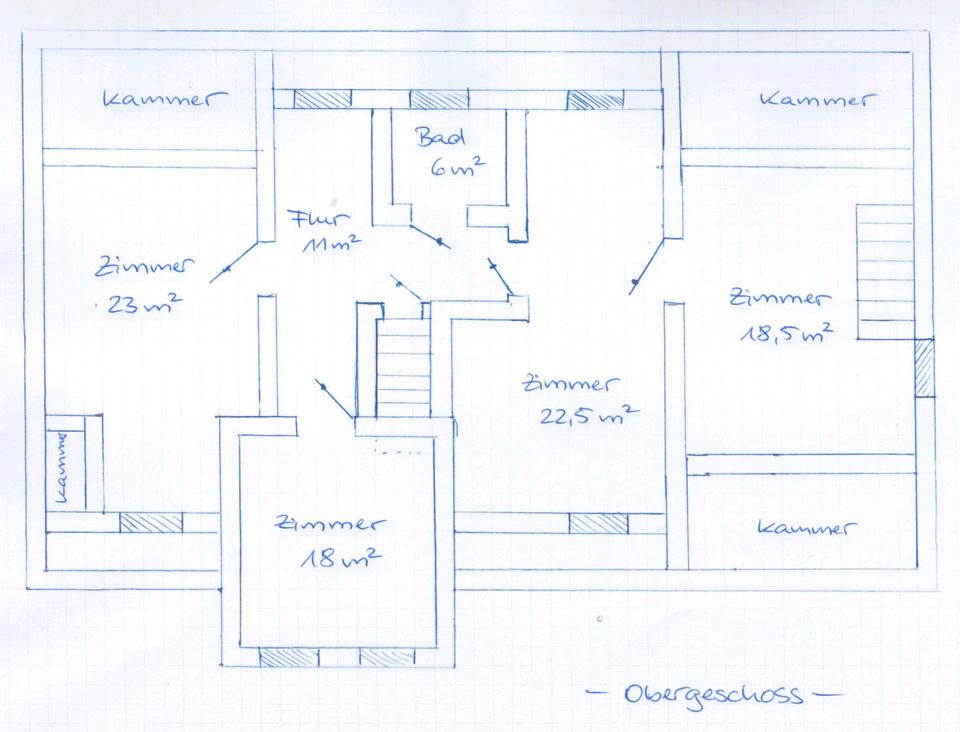 Kammer
Kammer
Bad
6 m²
Flur
11 m²
Zimmer
23 m²
Zimmer
18,5 m²
Zimmer
22,5 m²
Kammer
Zimmer
18 m²
Kammer
– Obergeschoss –